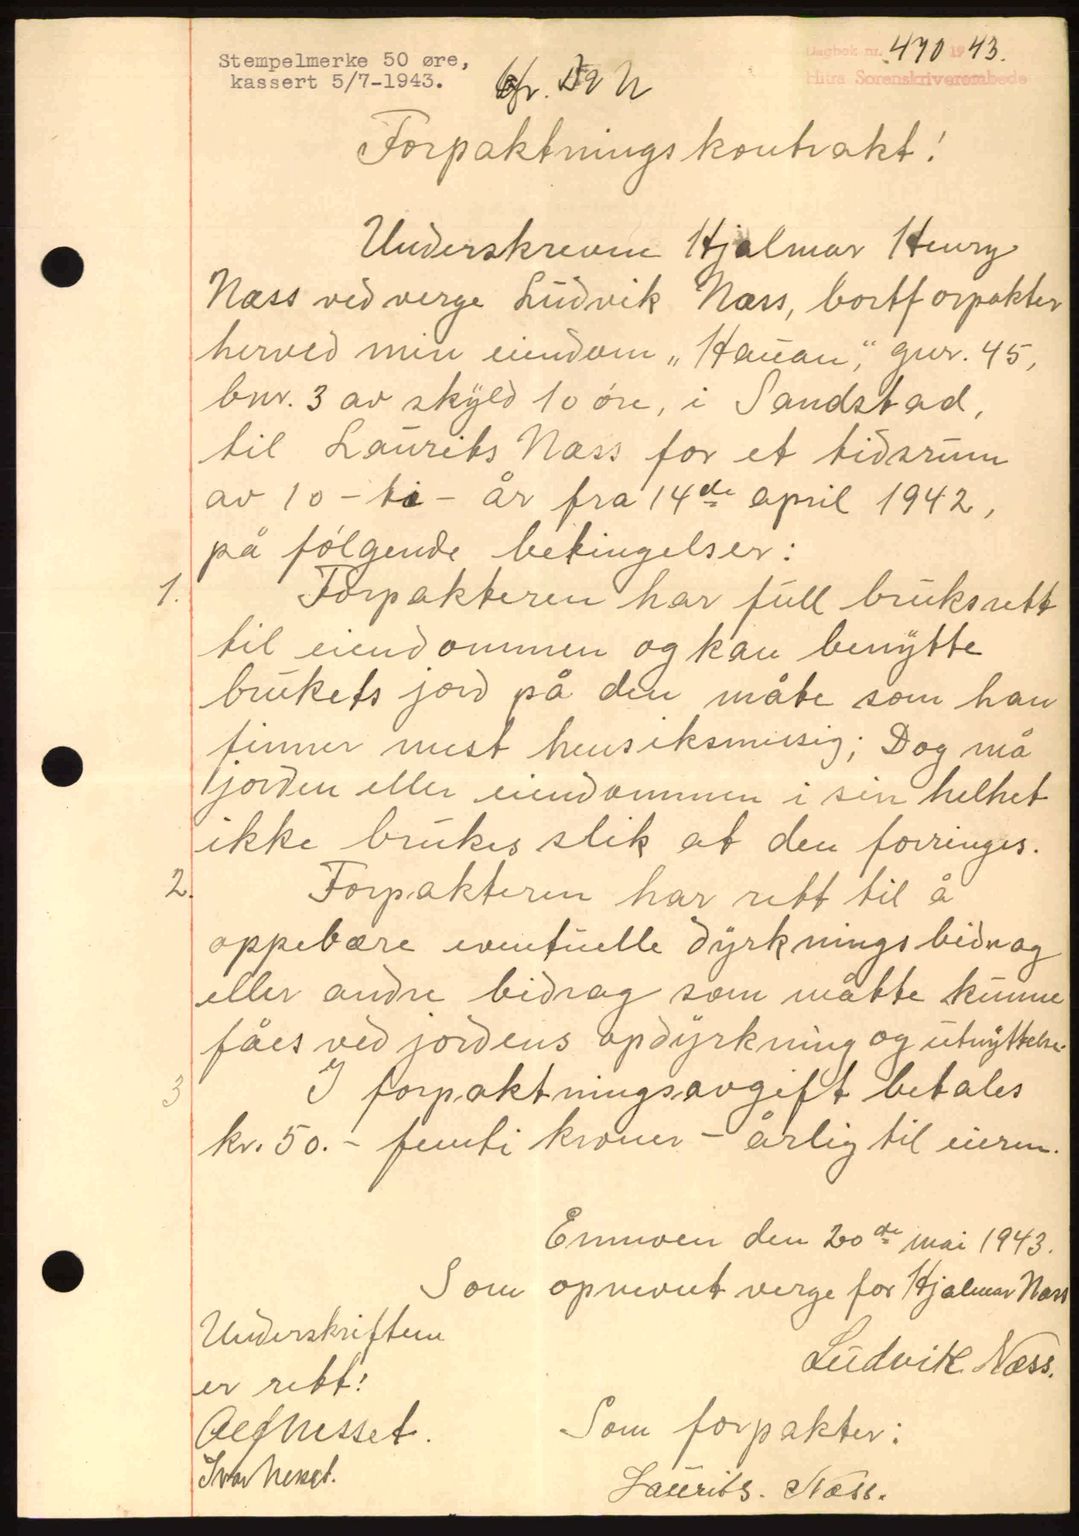 Stempelmerke 50 øre,
kassert 5/7-1943.
Dagbok nr. 470 1943.
Hitra Sorenskriverembede
Forpaktningskontrakt!
Underskreven Hjalmar Henry
Næss ved verge Ludvik Næss, bortforpakter
herved min eiendom „Hauan“, gnr. 45,
bnr. 3 av skyld 10 øre, i Sandstad,
til Laurits Næss for et tidsrum
av 10 - ti - år fra 14de april 1942,
på følgende betingelser:
1. Forpakteren har full bruksrett
til eiendommen og kan benytte
brukets jord på den måte som han
finner mest hensiksmessig; Dog må
jorden eller eiendommen i sin helhet
ikke brukes slik at den forringes.
2. Forpakteren har rett til å
oppebære eventuelle dyrkningsbidrag
eller andre bidrag som måtte kunne
fåes ved jordens opdyrkning og utnyttelse.
3 I forpaktningsavgift betales
kr. 50.- femti kroner - årlig til eieren.
den 20de mai 1943.
Som opnevnt verge for Hjalmar Næss
Ludvik Næss.
Underskriften
er rett:
Alf Nesset.
Ivar Nesset.
Som forpakter:
Laurits. Næss.